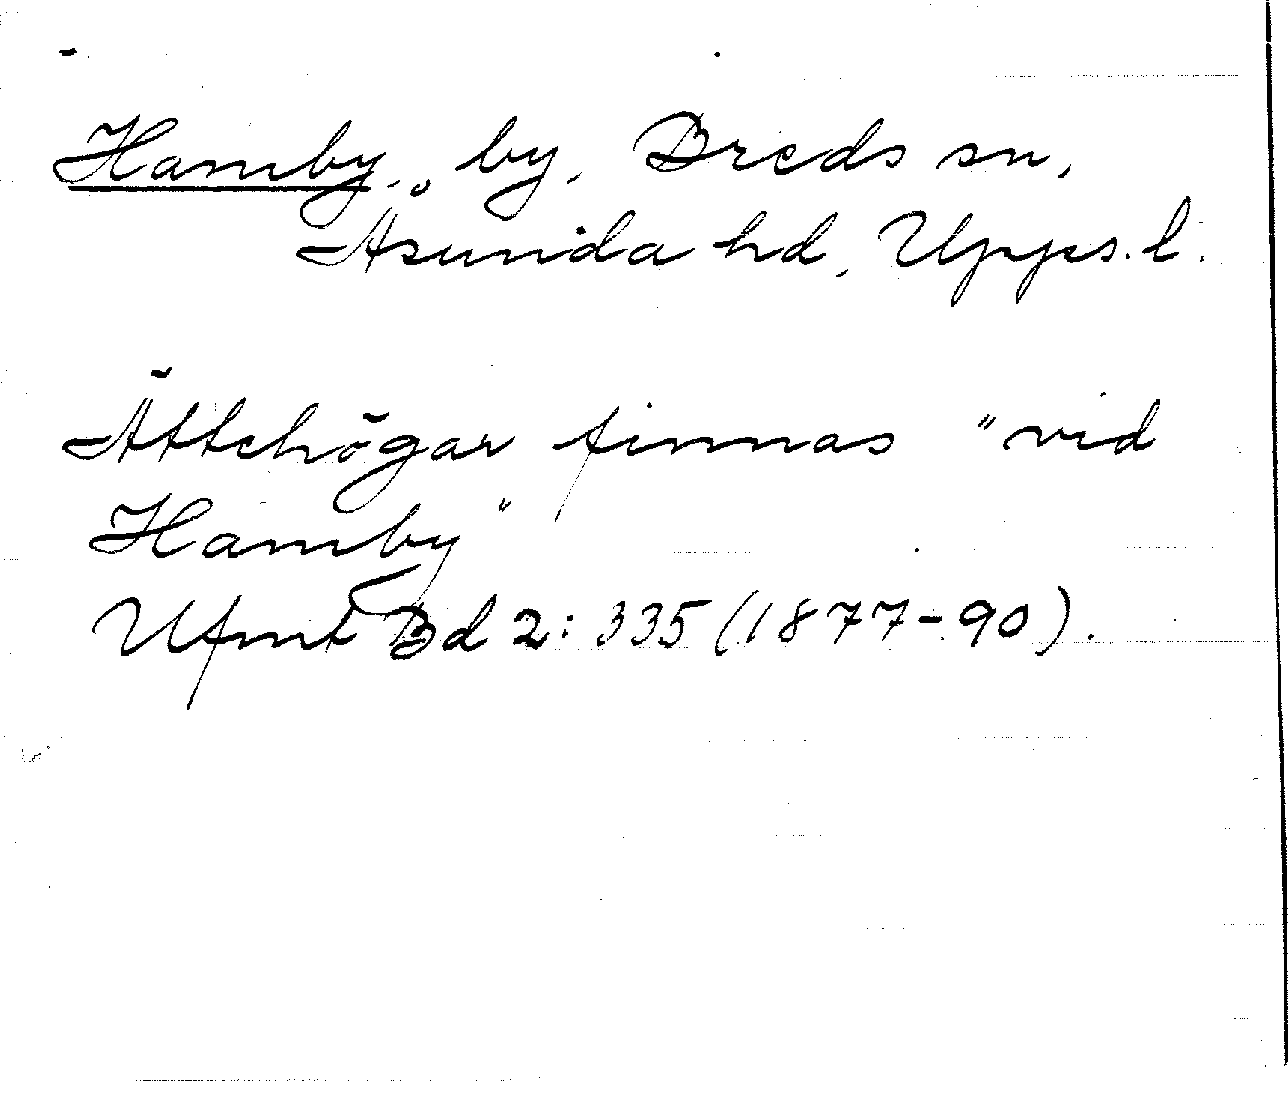 Hamby, by, Breds sn,
Åsunda hd, Upps. l.
Ättehögar finnas "vid
Hamby"
Ufmt Bd 2: 335 (1877-90).